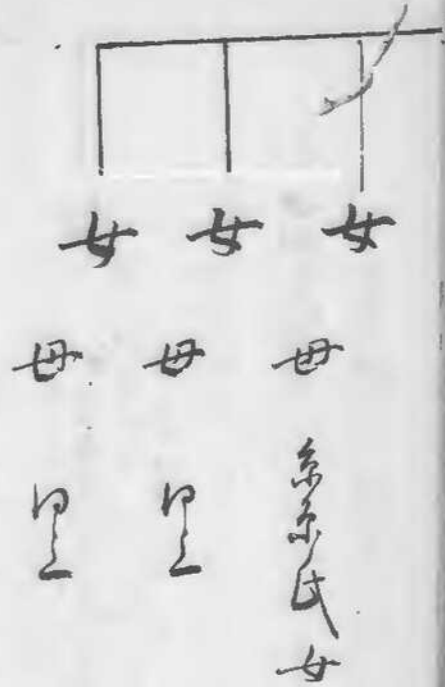 女 母 糸原氏女
女 母 同上
女 母 同上